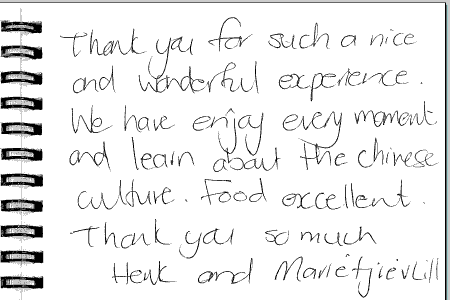 Thank you for such a nice
and wonderful experience.
We have enjoy every moment
and learn about the chinese
culture. Food excellent.
Thank you so much
Henk and